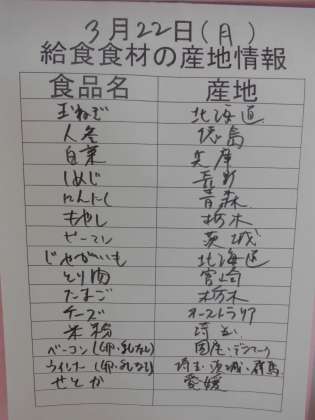 3月22日(月)
給食食材の産地情報
食品名 産地
玉ねぎ 北海道
人参 徳島
白菜 兵庫
しめじ 長野
にんにく 青森
もやし 栃木
ピーマン 茨城
じゃがいも 北海道
とり肉 宮崎
たまご 栃木
チーズ オーストラリア
米粉 埼玉
ベーコン(卵・乳なし) 国産・デンマーク
ウインナー(卵・乳なし) 埼玉・茨城・群馬
せとか 愛媛